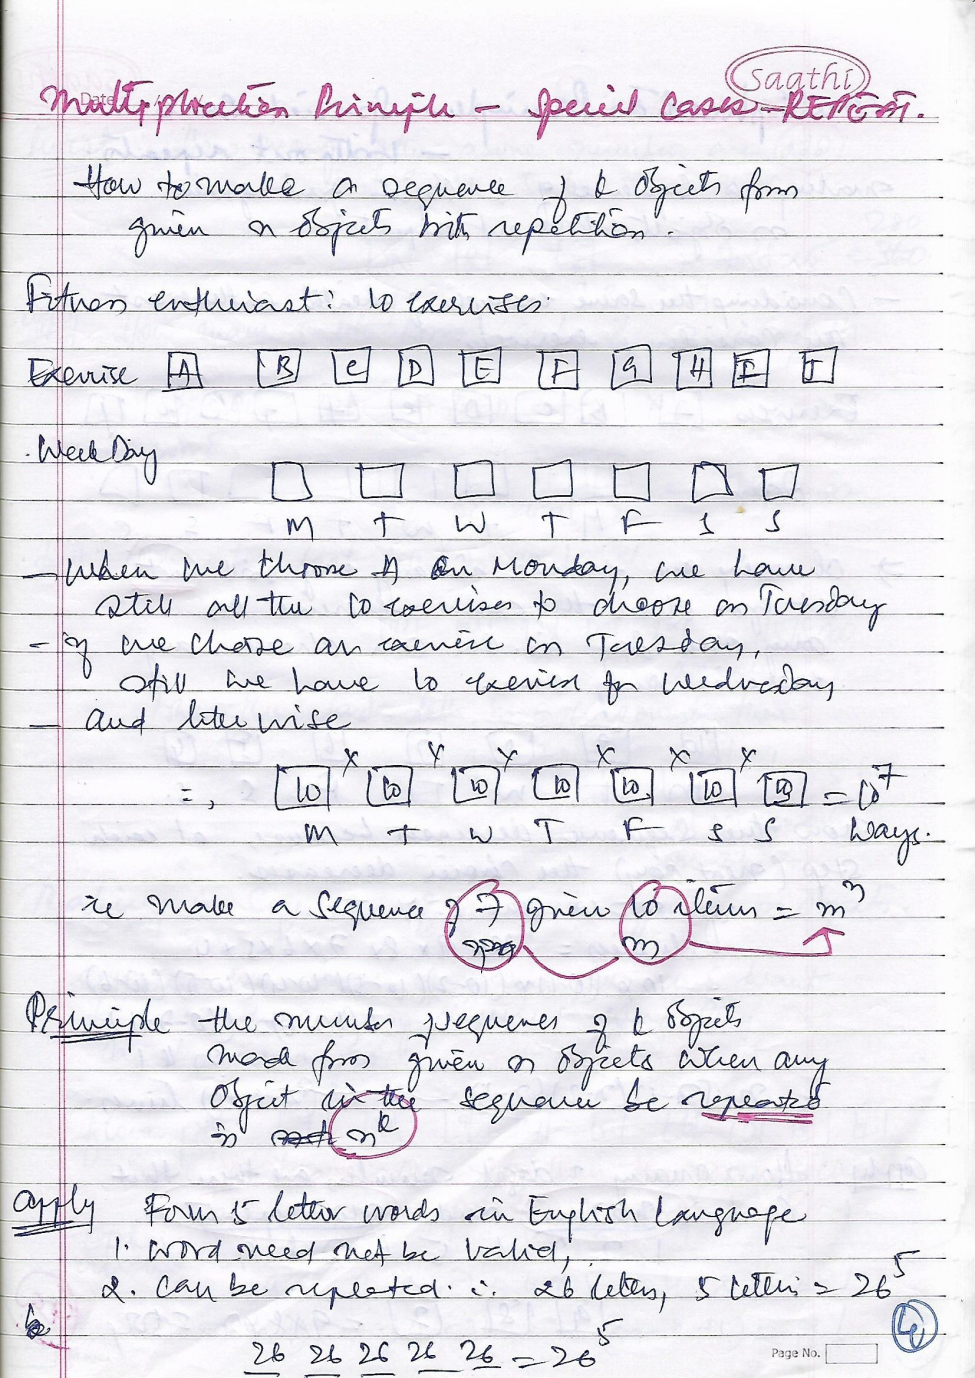 Saathi
Date / /
Multiplication Principle – Special Cases – REPEAT.
How to make a sequence of k objects from
given n objects with repetition.
Fitness enthusiast: 10 exercises.
Exercise A B C D E F G H I J
Week Day
M T W T F S S
– When we choose A on Monday, we have
still all the 10 exercises to choose on Tuesday
– if we chose an exercise on Tuesday,
still we have 10 exercises for Wednesday
– and likewise
=, 10 × 10 × 10 × 10 × 10 × 10 × 10 = 10^7
M T W T F S S Ways.
ie make a sequence of 7 given 10 items = m^n
m
Principle the number of sequences of k objects
made from given n objects when any
object in the sequence be repeated
is n^k
Apply Form 5 letter words in English language
1. word need not be valid,
2. can be repeated. ∴ 26 letters, 5 letters = 26^5
26 26 26 26 26 = 26^5
Page No.